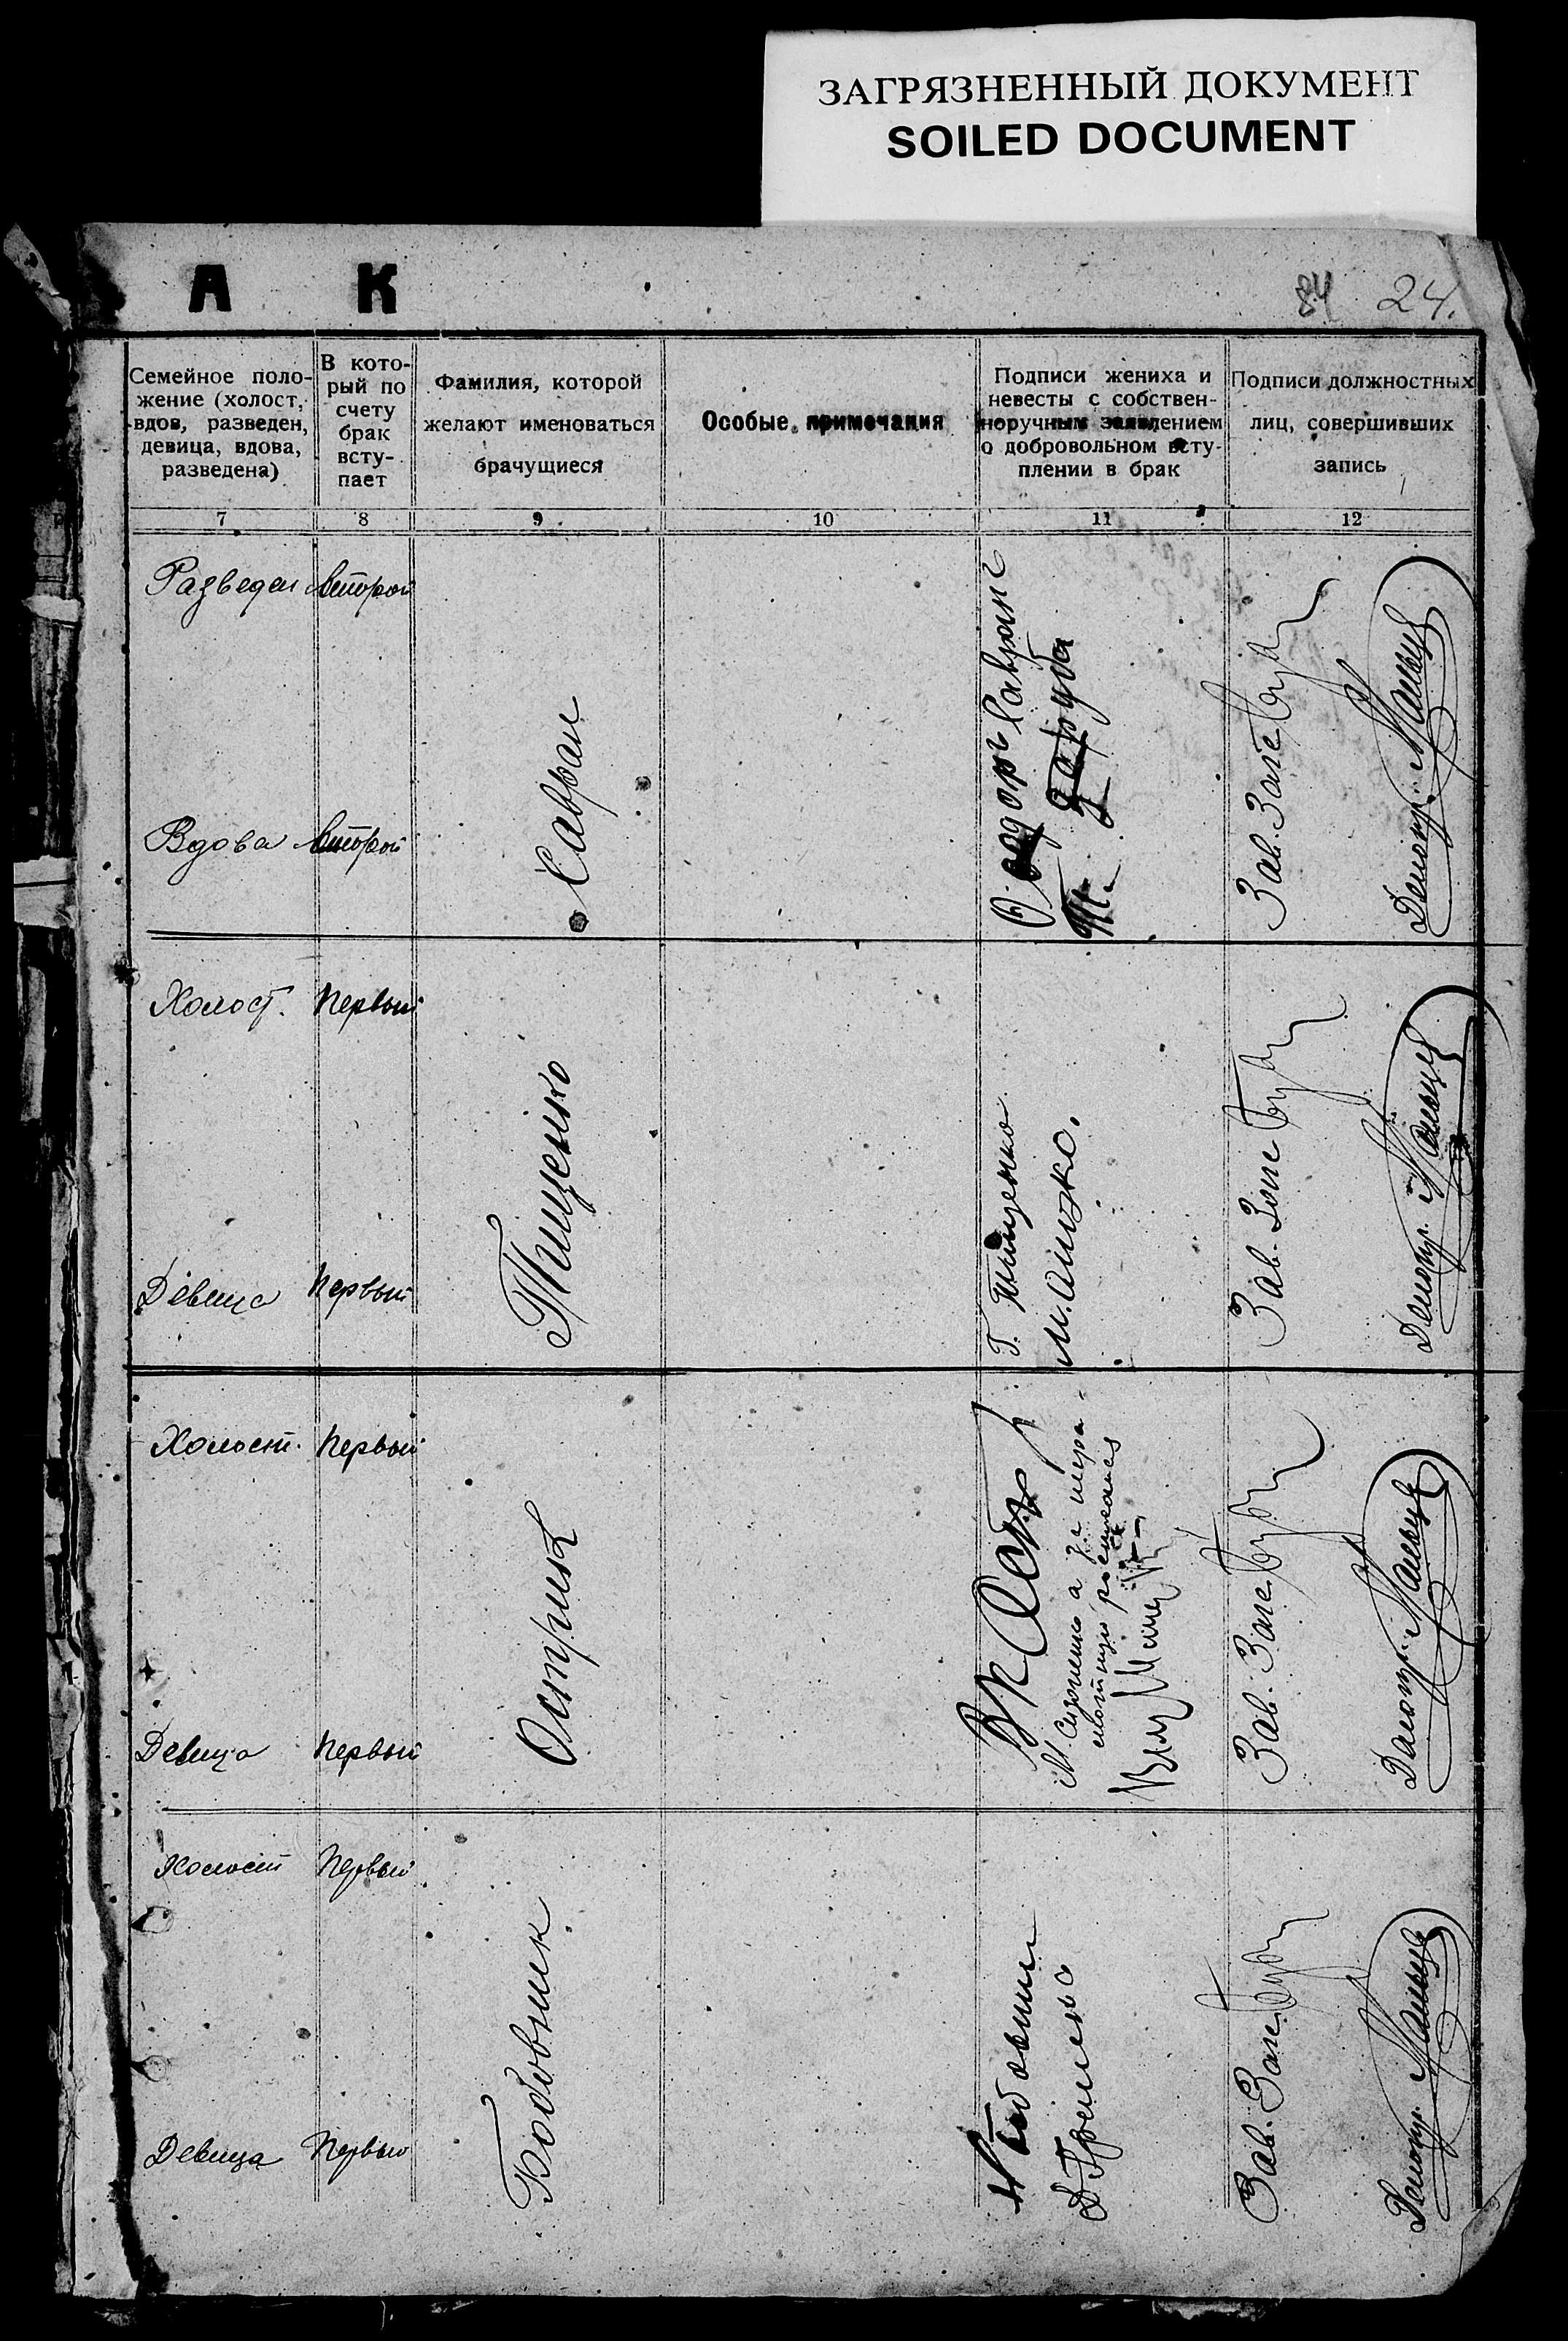 ЗАГРЯЗНЕННЫЙ ДОКУМЕНТ
SOILED DOCUMENT
А К
84 24.
Семейное поло-
жение (холост,
вдов, разведен,
девица, вдова,
разведена)
В кото-
рый по
счету
брак
всту-
пает
Фамилия, которой
желают именоваться
брачущиеся
Особые примечания
Подписи жениха и
невесты с собствен-
норучным заявлением
о добровольном всту-
плении в брак
Подписи должностных
лиц, совершивших
запись
7 8 9 10 11 12
Разведен второй
Вдова второй
Савран
Савран
Заруба
Зав. Загс
Делопр. Мальце
Холост. Первый
Девица Первый
Тищенко
Г. Тищенко
М. Ошко.
Зав. Загс
Делопр. Мальце
Холост. Первый
Девица Первый
Острик
ВК Ост
М. а за негра-
мотную
Зав. Загс
Делопр. Мальце
Холост Первый
Девица Первый
Бобовник
Зав. Загс
Делопр. Мальце